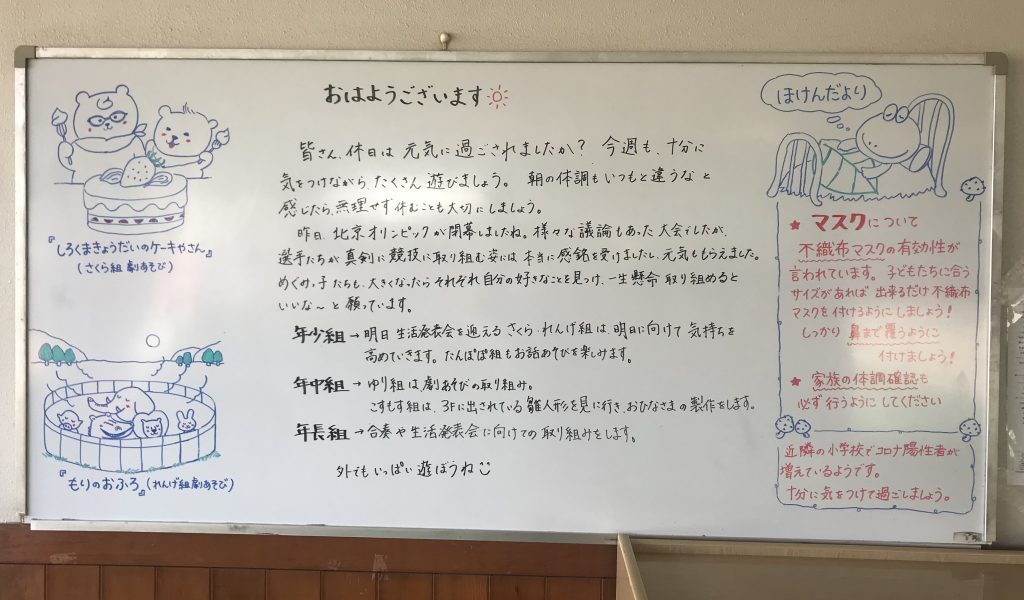 おはようございます
皆さん、休日は 元気に過ごされましたか? 今週も、十分に
気をつけながら、たくさん 遊びましょう。 朝の体調も いつもと違うな と
感じたら、無理せず 休むことも 大切に しましょう。
昨日、北京オリンピックが 閉幕しましたね。様々な 議論もあった 大会でしたが、
選手たちが 真剣に競技に取り組む姿には 本当に感銘を受けましたし、元気ももらえました。
めぐみっ子たちも、大きくなったら それぞれ自分の好きなことを見つけ、一生懸命 取り組めると
いいな~と 願っています。
年少組→明日 生活発表会を迎える さくら・れんげ組は、明日に向けて 気持ちを
高めていきます。たんぽぽ組もお話あそびを楽しみます。
年中組→ゆり組は劇あそびの取り組み。
こすもす組は、3Fに出されている 雛人形を見に行き、おひなさまの 製作をします。
年長組→合奏や生活発表会に向けての 取り組みをします。
外でも いっぱい 遊ぼうね
『しろくまきょうだいのケーキやさん』
(さくら組 劇あそび)
『もりのおふろ』(れんげ組劇あそび)
ほけんだより
★ マスクについて
不織布マスクの有効性が
言われています。子どもたちに合う
サイズがあれば 出来るだけ 不織布
マスクを付けるように しましょう!
しっかり 鼻まで覆うように
付けましょう!
★ 家族の体調確認も
必ず 行うように してください
近隣の小学校でコロナ陽性者が
増えているようです。
十分に気をつけて過ごしましょう。